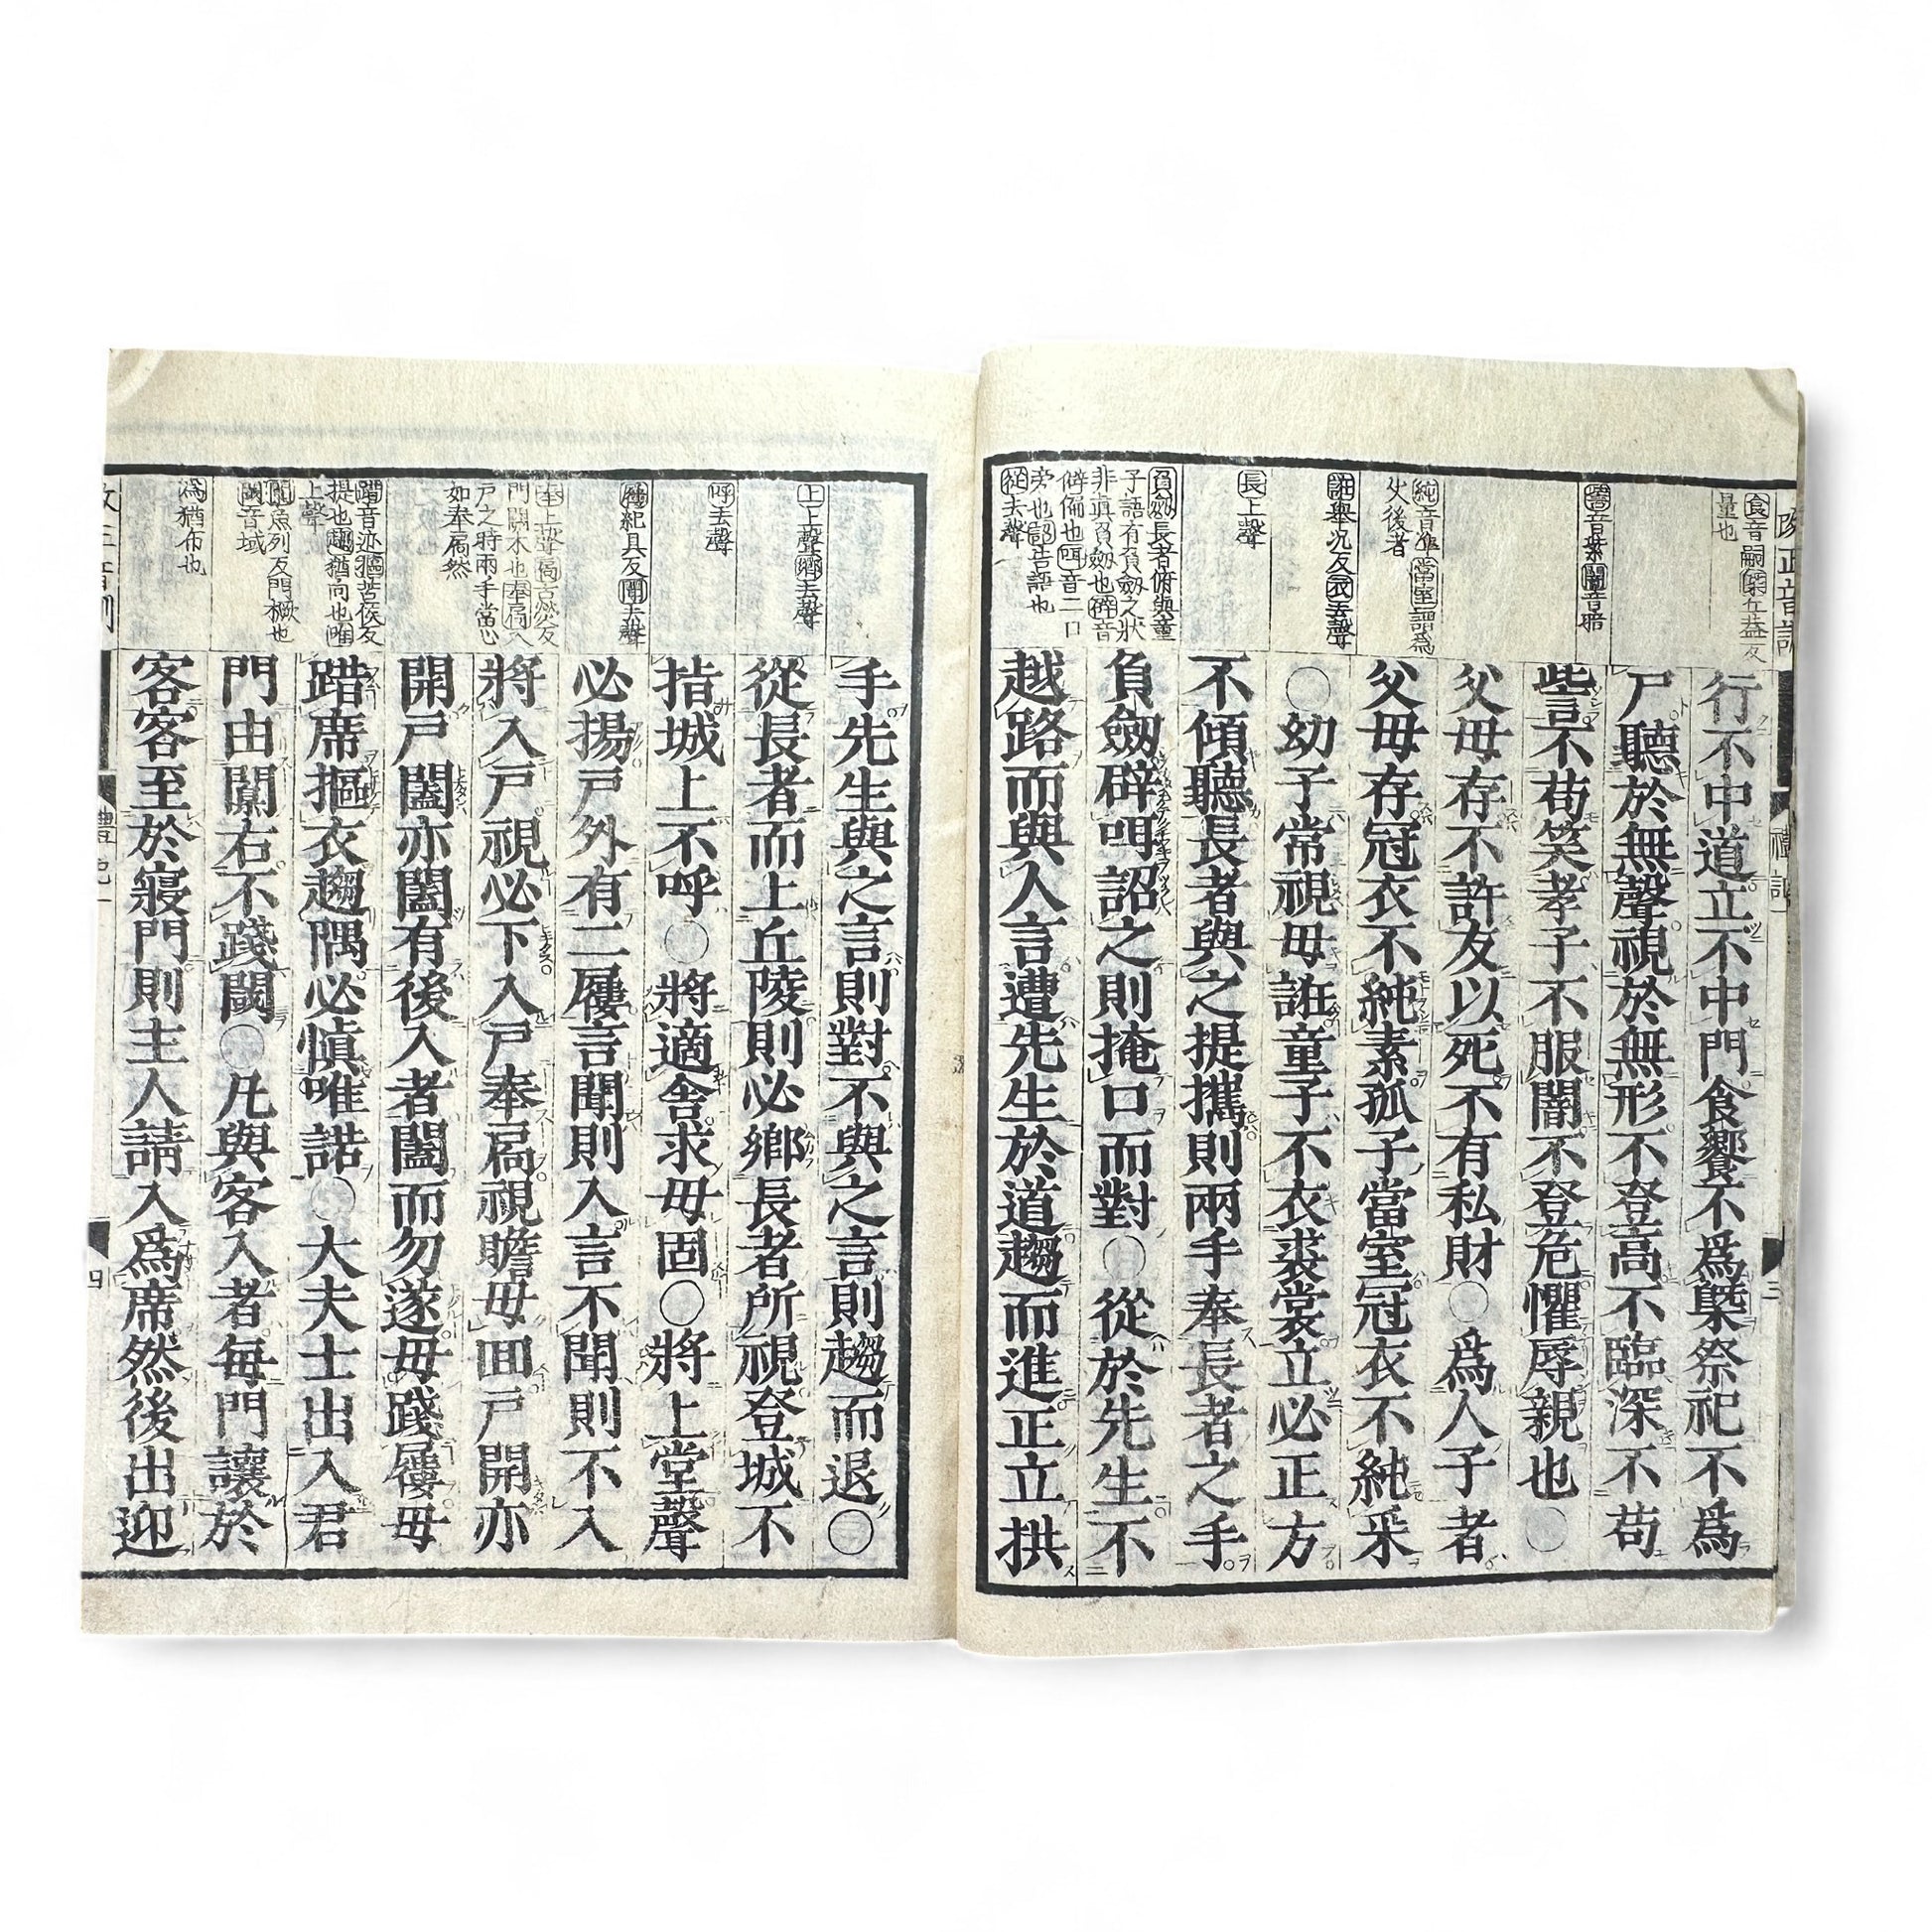 改正音訓
禮記
三
食音嗣槩古葢反
量也
行不中道立不中門食饗不爲槩祭祀不爲
尸聽於無聲視於無形不登高不臨深不苟
訾音紫闇音暗
訾不苟笑孝子不服闇不登危懼辱親也○
父母存不許友以死不有私財○爲人子者
純音準當室謂為
父後者
父母存冠衣不純素孤子當室冠衣不純采
誑舉况反衣去聲
○幼子常視毋誑童子不衣裘裳立必正方
長上聲
不傾聽長者與之提攜則兩手奉長者之手
負劔長者俯與童
子語有負劔之狀
非眞負劔也辟音
僻偏也咡音二口
旁也詔告語也
從去聲
負劔辟咡詔之則掩口而對○從於先生不
越路而與人言遭先生於道趨而進正立拱
手先生與之言則對不與之言則趨而退○
上上聲鄉去聲
從長者而上丘陵則必鄉長者所視登城不
呼去聲
指城上不呼○將適舍求毋固○將上堂聲
屨紀具反聞去聲
必揚戸外有二屨言聞則入言不聞則不入
奉上聲扃古熒反
門關木也奉扃入
戸之時兩手當心
如奉扃然
將入戸視必下入戸奉扃視瞻毋回戸開亦
開戸闔亦闔有後入者闔而勿遂毋踐屨毋
踖音迹摳苦侯反
提也趨猶向也唯
上聲
踖席摳衣趨隅必愼唯諾○大夫士出入君
闑魚列反門橛也
閾音域
門由闑右不踐閾○凡與客入者每門讓於
為猶布也
客客至於寢門則主人請入爲席然後出迎
改正音訓
禮記一
四